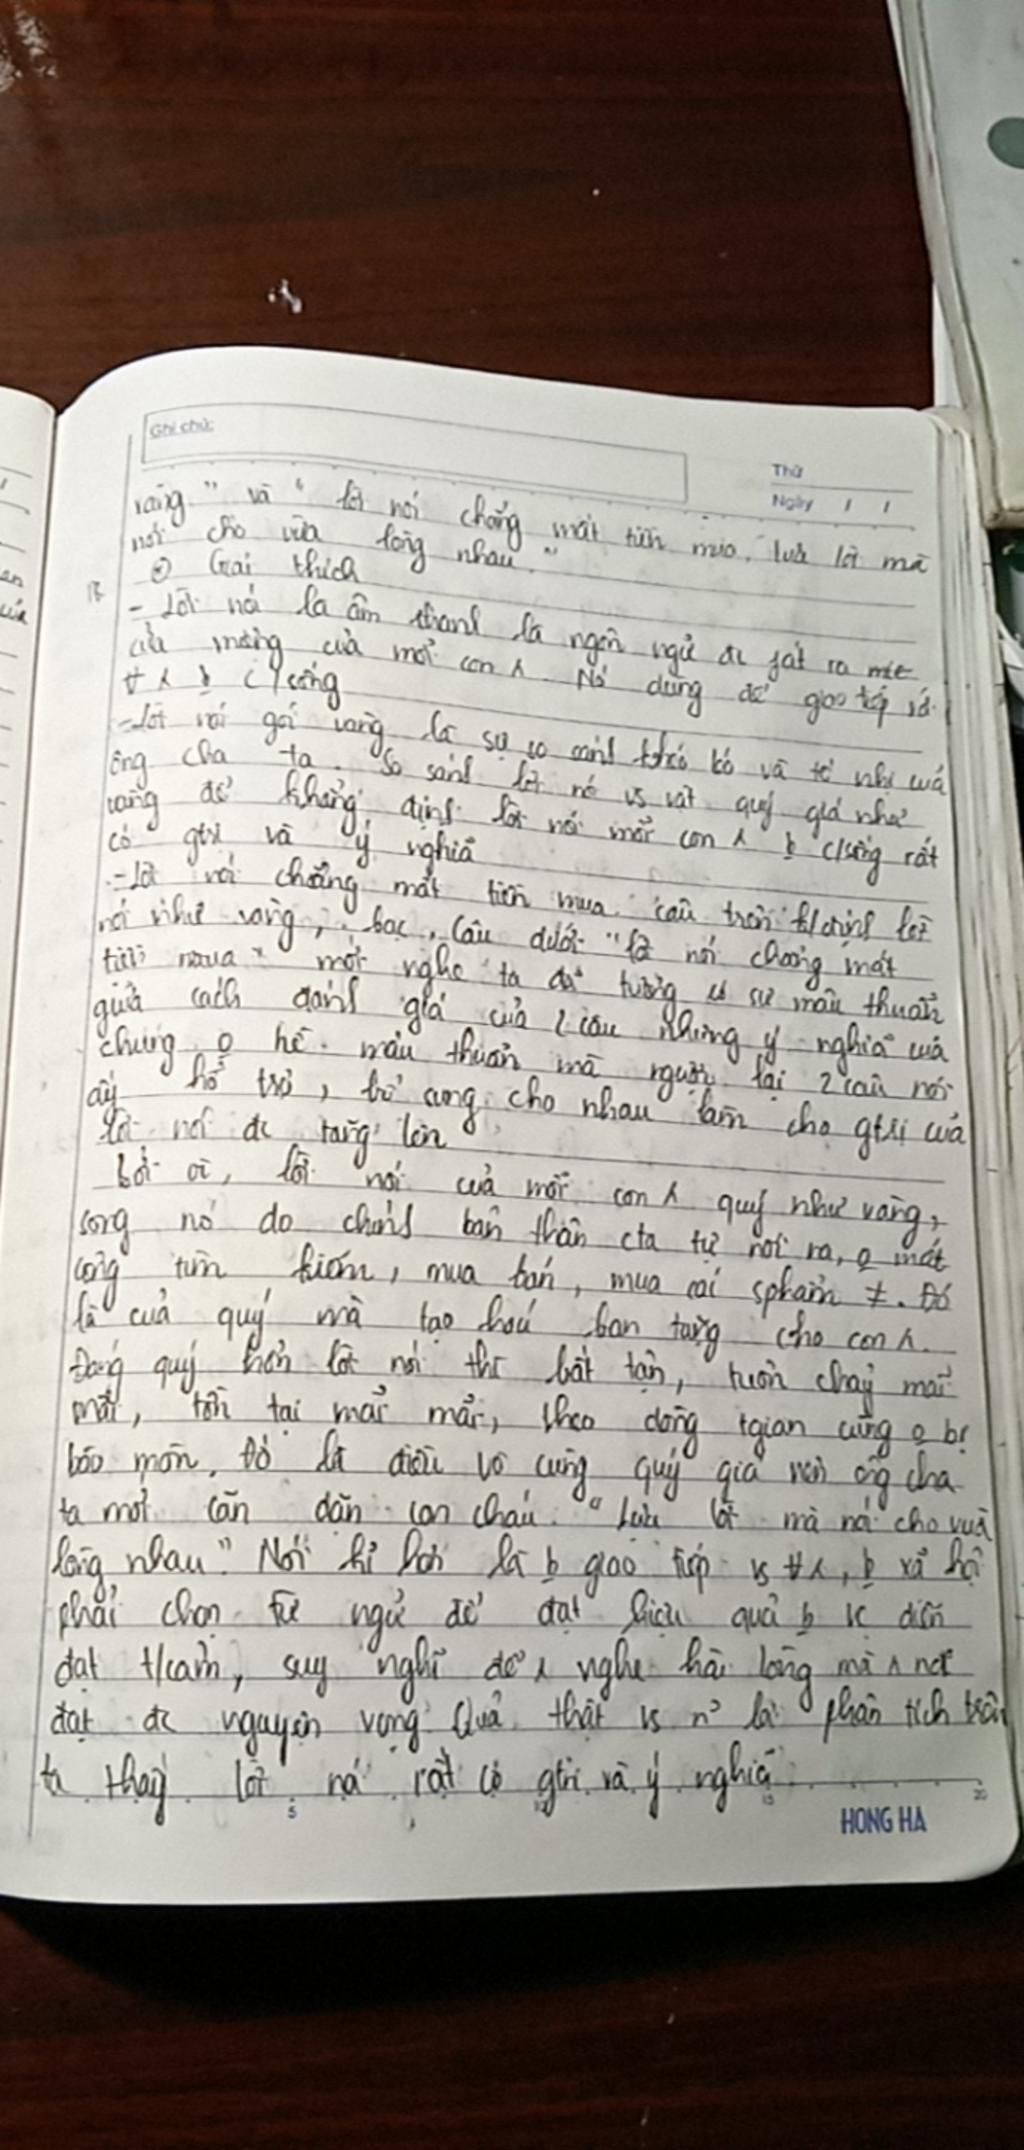 Ghi chú:
Thứ
Ngày / /
vàng" và "lời nói chẳng mất tiền mua, lựa lời mà
nói cho vừa lòng nhau."
② Giải thích
- Lời nói là âm thanh là ngôn ngữ đc fát ra
của mỗi con ng. Nó dùng để giao tiếp với
c/sống
- Lời nói gói vàng là sự so sánh của
ông cha ta. So sánh lời nói vs vật quý giá như
vàng để khẳng định lời nói mỗi con ng c/sống rất
có gtrị và ý nghĩa
- Lời nói chẳng mất tiền mua. câu trên k/định lời
nói như vàng, bạc, câu dưới "lời nói chẳng mất
tiền mua" mới nghe ta đã tưởng có sự mâu thuẫn
giữa cách đánh giá của 2 câu nhưng ý nghĩa của
chúng o hề mâu thuẫn mà ngược lại 2 câu nói
ấy hỗ trợ, bổ sung cho nhau làm cho gtrị của
lời nói đc tăng lên
Bởi vì, lời nói của mỗi con ng quý như vàng,
song nó do chính bản thân cta tự nói ra, o mất
công tìm kiếm, mua bán, mua cái sphẩm ≠. Đó
là của quý mà tạo hoá ban tặng cho con ng.
Đáng quý hơn lời nói thì bất tận, tuôn chảy mãi
mãi, tồn tại mãi mãi, theo dòng tgian cũng o bị
bào mòn. Đó là điều vô cùng quý giá nên ông cha
ta mới căn dặn con cháu "Lựa lời mà nói cho vừa
lòng nhau" Nói giao tiếp vs xã hội
phải chọn từ ngữ để đạt hiệu quả diễn
đạt t/cảm, suy nghĩ để ng nghe hài lòng mà ng nói
đạt đc nguyện vọng Quả thật vs n² lời phân tích trên
ta thấy lời nói rất có gtrị và ý nghĩa
5 10 15 20
HONG HA